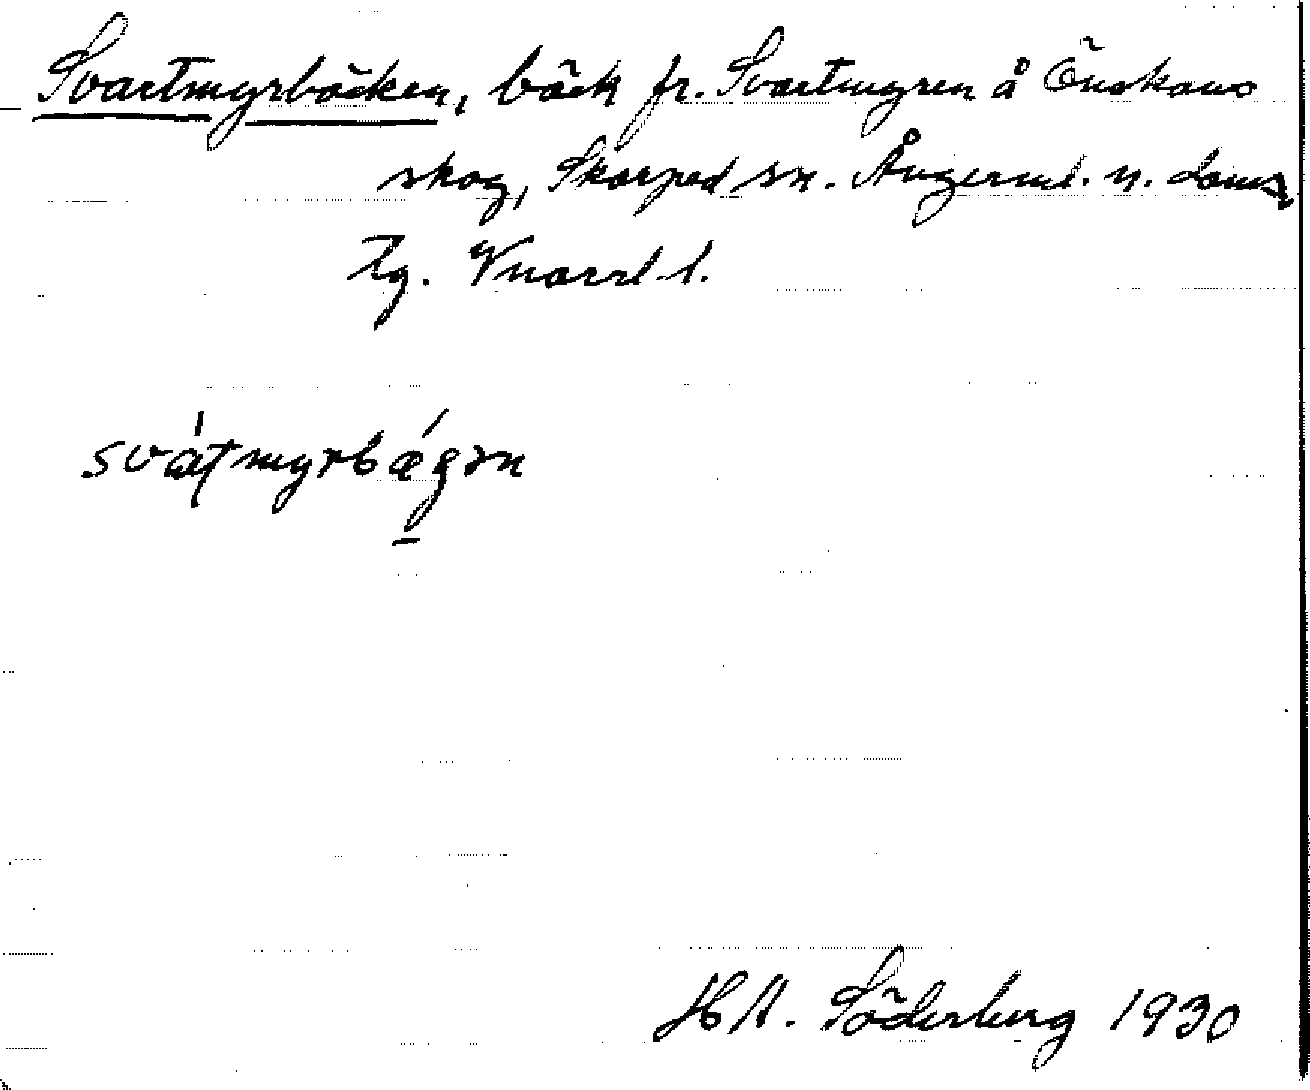 Svartmyrbäcken, bäck fr. Svartmyren å Önskans
skog, Skorped sn. Ångerml. n. doms
Tg. Vnorrl. l.
svátmyrbǽgən
HA. Söderberg 1930